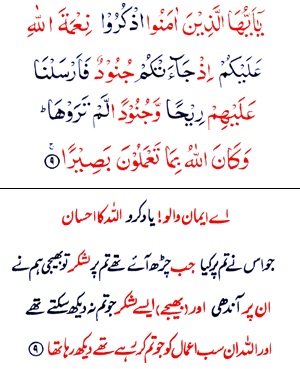 يٰۤاَيُّهَا الَّذِيْنَ اٰمَنُوا اذْكُرُوْا نِعْمَةَ اللّٰهِ
عَلَيْكُمْ اِذْ جَآءَتْكُمْ جُنُوْدٌ فَاَرْسَلْنَا
عَلَيْهِمْ رِيْحًا وَّجُنُوْدًا لَّمْ تَرَوْهَا ؕ
وَكَانَ اللّٰهُ بِمَا تَعْمَلُوْنَ بَصِيْرًا ۚ ۹
اے ایمان والو! یاد کرو اللہ کا احسان
جو اس نے تم پر کیا جب چڑھ آئے تھے تم پر لشکر تو بھیجی ہم نے
ان پر آندھی اور (بھیجے) ایسے لشکر جو تم نہ دیکھ سکتے تھے
اور اللہ ان سب اعمال کو جو تم کر رہے تھے دیکھ رہا تھا ۹